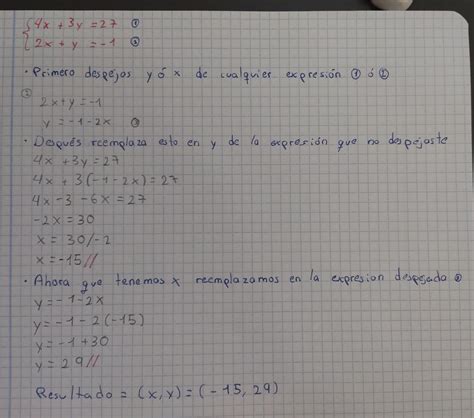 4x + 3y = 27 ①
2x + y = -1 ②
• Primero despejas y ó x de cualquier expresión ① ó ②
②
2x+y=-1
y = -1-2x ③
• Después reemplaza esto en y de la expresión que no despejaste
4x +3y=27
4x + 3(-1-2x)=27
4x -3 -6x = 27
-2x = 30
x = 30/-2
x = -15//
• Ahora que tenemos x reemplazamos en la expresion despejada ③
y=-1-2x
y=-1-2(-15)
y=-1+30
y = 29//
Resultado = (x,y)=(-15, 29)